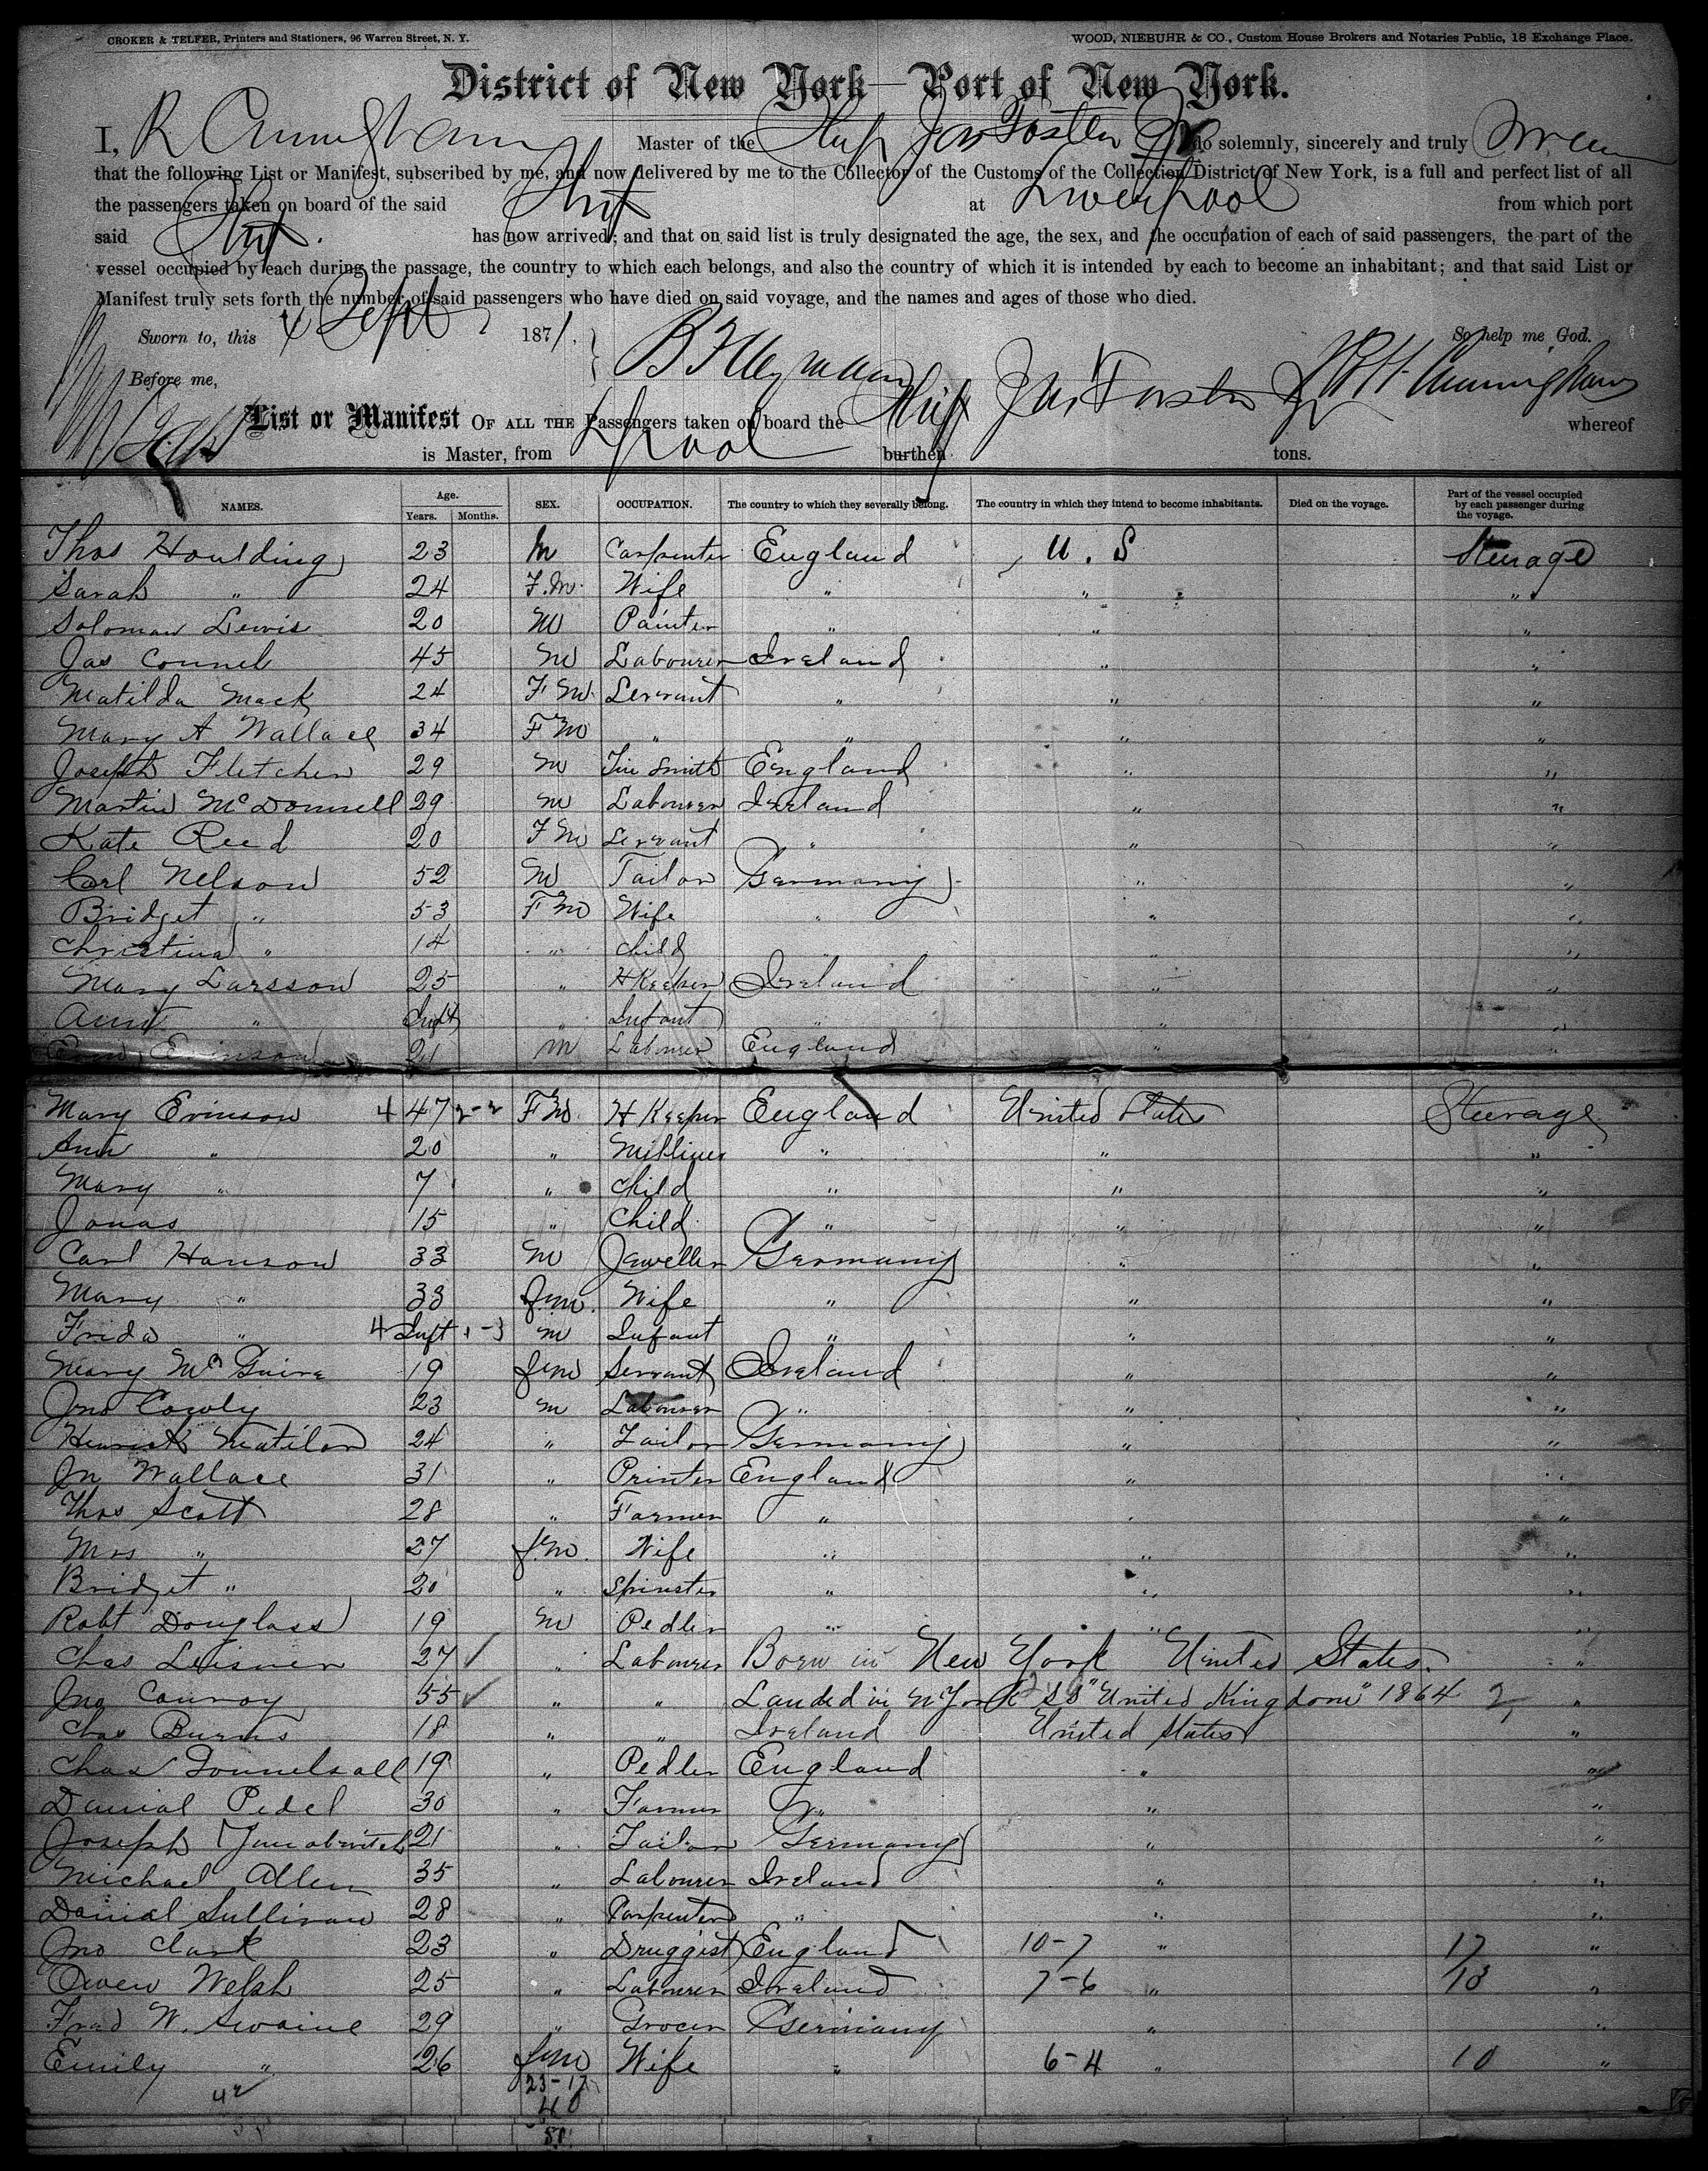 CROKER & TELFER, Printers and Stationers, 96 Warren Street, N. Y. WOOD, NIEBUHR & CO., Custom House Brokers and Notaries Public, 18 Exchange Place.
District of New York—Port of New York.
I, R Cunningham Master of the Ship Jas Foster Jr do solemnly, sincerely and truly swear
that the following List or Manifest, subscribed by me, and now delivered by me to the Collector of the Customs of the Collection District of New York, is a full and perfect list of all
the passengers taken on board of the said Ship at Liverpool from which port
said Ship has now arrived; and that on said list is truly designated the age, the sex, and the occupation of each of said passengers, the part of the
vessel occupied by each during the passage, the country to which each belongs, and also the country of which it is intended by each to become an inhabitant; and that said List or
Manifest truly sets forth the number of said passengers who have died on said voyage, and the names and ages of those who died.
Sworn to, this 4 Sept 1871. So help me God.
Before me, R H Cunningham
List or Manifest OF ALL THE Passengers taken on board the Ship Jas Foster Jr whereof
is Master, from Lpool burthen tons.
NAMES. Age. Years. Months. SEX. OCCUPATION. The country to which they severally belong. The country in which they intend to become inhabitants. Died on the voyage. Part of the vessel occupied by each passenger during the voyage.
Thos Houlding 23 M Carpenter England U.S Steerage
Sarah " 24 F.M. Wife " " "
Soloman Lewis 20 M Painter " " "
Jas Connel 45 M Labourer Ireland " "
Matilda Mack 24 F M. Servant " " "
Mary A Wallace 34 F M " " " "
Joseph Fletcher 29 M Tin Smith England " "
Martin McDonnell 29 M Labourer Ireland " "
Kate Reed 20 F M Servant " " "
Carl Nelson 52 M Tailor Germany " "
Bridget " 53 F M Wife " " "
Christina " 14 " Child " " "
Mary Larsson 25 " H Keeper Ireland " "
" Inft " Infant " " "
Erinson 21 M Labourer England " "
Mary Erinson 4 47 2-2 F M H Keeper England United States Steerage
Ann " 20 " Milliner " " "
Mary " 7 " Child " " "
Jonas 15 " Child " " "
Carl Hanson 33 M Jeweller Germany " "
Mary " 33 F.M. Wife " " "
Frida " 4 Inft 1-3 M Infant " " "
Mary McGuire 19 F M Servant Ireland " "
Jno Cowly 23 M Labourer " " "
24 " Tailor Germany " "
Jn Wallace 31 " Printer England " "
Thos Scott 28 " Farmer " " "
Mrs " 27 F.M. Wife " " "
Bridget " 20 " Spinster " " "
Robt Douglass 19 M Pedler " " "
Chas 27 " Labourer Born in New York United States. "
Jno Conroy 55 " " Landed in N York SS "United Kingdom" 1864 2 "
Chas Burns 18 " " Ireland United States "
Chas 19 " Pedler England " "
Danial Pedel 30 " Farmer " " "
Joseph 21 " Tailor Germany " "
Michael Allen 35 " Labourer Ireland " "
Danial Sullivan 28 " Carpenter " " "
Jno Clark 23 " Druggist England 10-7 " 17 "
Owen Welsh 25 " Labourer Ireland 7-6 " 13 "
Fred W. Swaine 29 " Grocer Germany " "
Emily " 26 F M Wife " 6-4 " 10 "
42 23-17
40